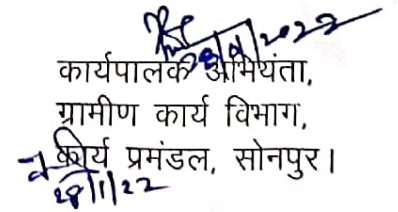 28/01/2022
कार्यपालक अभियंता,
ग्रामीण कार्य विभाग,
कार्य प्रमंडल, सोनपुर।
28/1/22